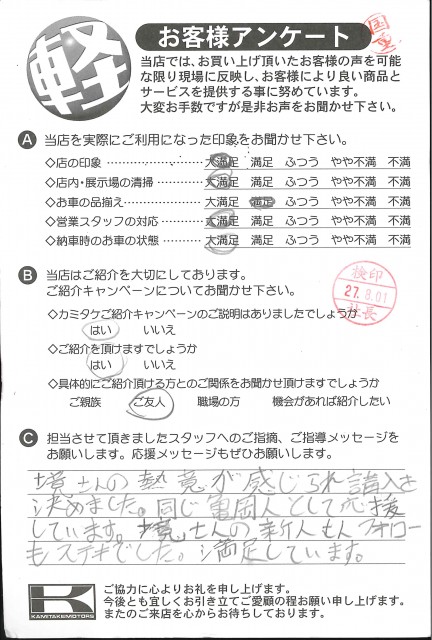 軽
お客様アンケート
当店では、お買い上げ頂いたお客様の声を可能
な限り現場に反映し、お客様により良い商品と
サービスを提供する事に努めています。
大変お手数ですが是非お声をお聞かせ下さい。
A 当店を実際にご利用になった印象をお聞かせ下さい。
◇店の印象 …………………… 大満足 満足 ふつう やや不満 不満
◇店内・展示場の清掃………… 大満足 満足 ふつう やや不満 不満
◇お車の品揃え………………… 大満足 満足 ふつう やや不満 不満
◇営業スタッフの対応 ………… 大満足 満足 ふつう やや不満 不満
◇納車時のお車の状態 ………… 大満足 満足 ふつう やや不満 不満
B 当店はご紹介を大切にしてあります。
ご紹介キャンペーンについてお聞かせ下さい。
検印
27.8.01
社長
◇カミタケご紹介キャンペーンのご説明はありましたでしょうか
はい いいえ
◇ご紹介を頂けますでしょうか
はい いいえ
◇具体的にご紹介頂ける方とのご関係をお聞かせ頂けますでしょうか
ご親族 ご友人 職場の方 機会があれば紹介したい
C 担当させて頂きましたスタッフへのご指摘、ご指導メッセージを
お願いします。応援メッセージもぜひお願いします。
境さんの熱意が感じられ購入を
決めました。同じ亀岡人として応援
しています。境さんの新人さんフォロー
もステキでした。満足しています。
KAMITAKEMOTORS
ご協力に心よりお礼を申し上げます。
今後とも宜しくお引き立てご愛顧の程お願い申し上げます。
またのご来店を心からお待ちしております。